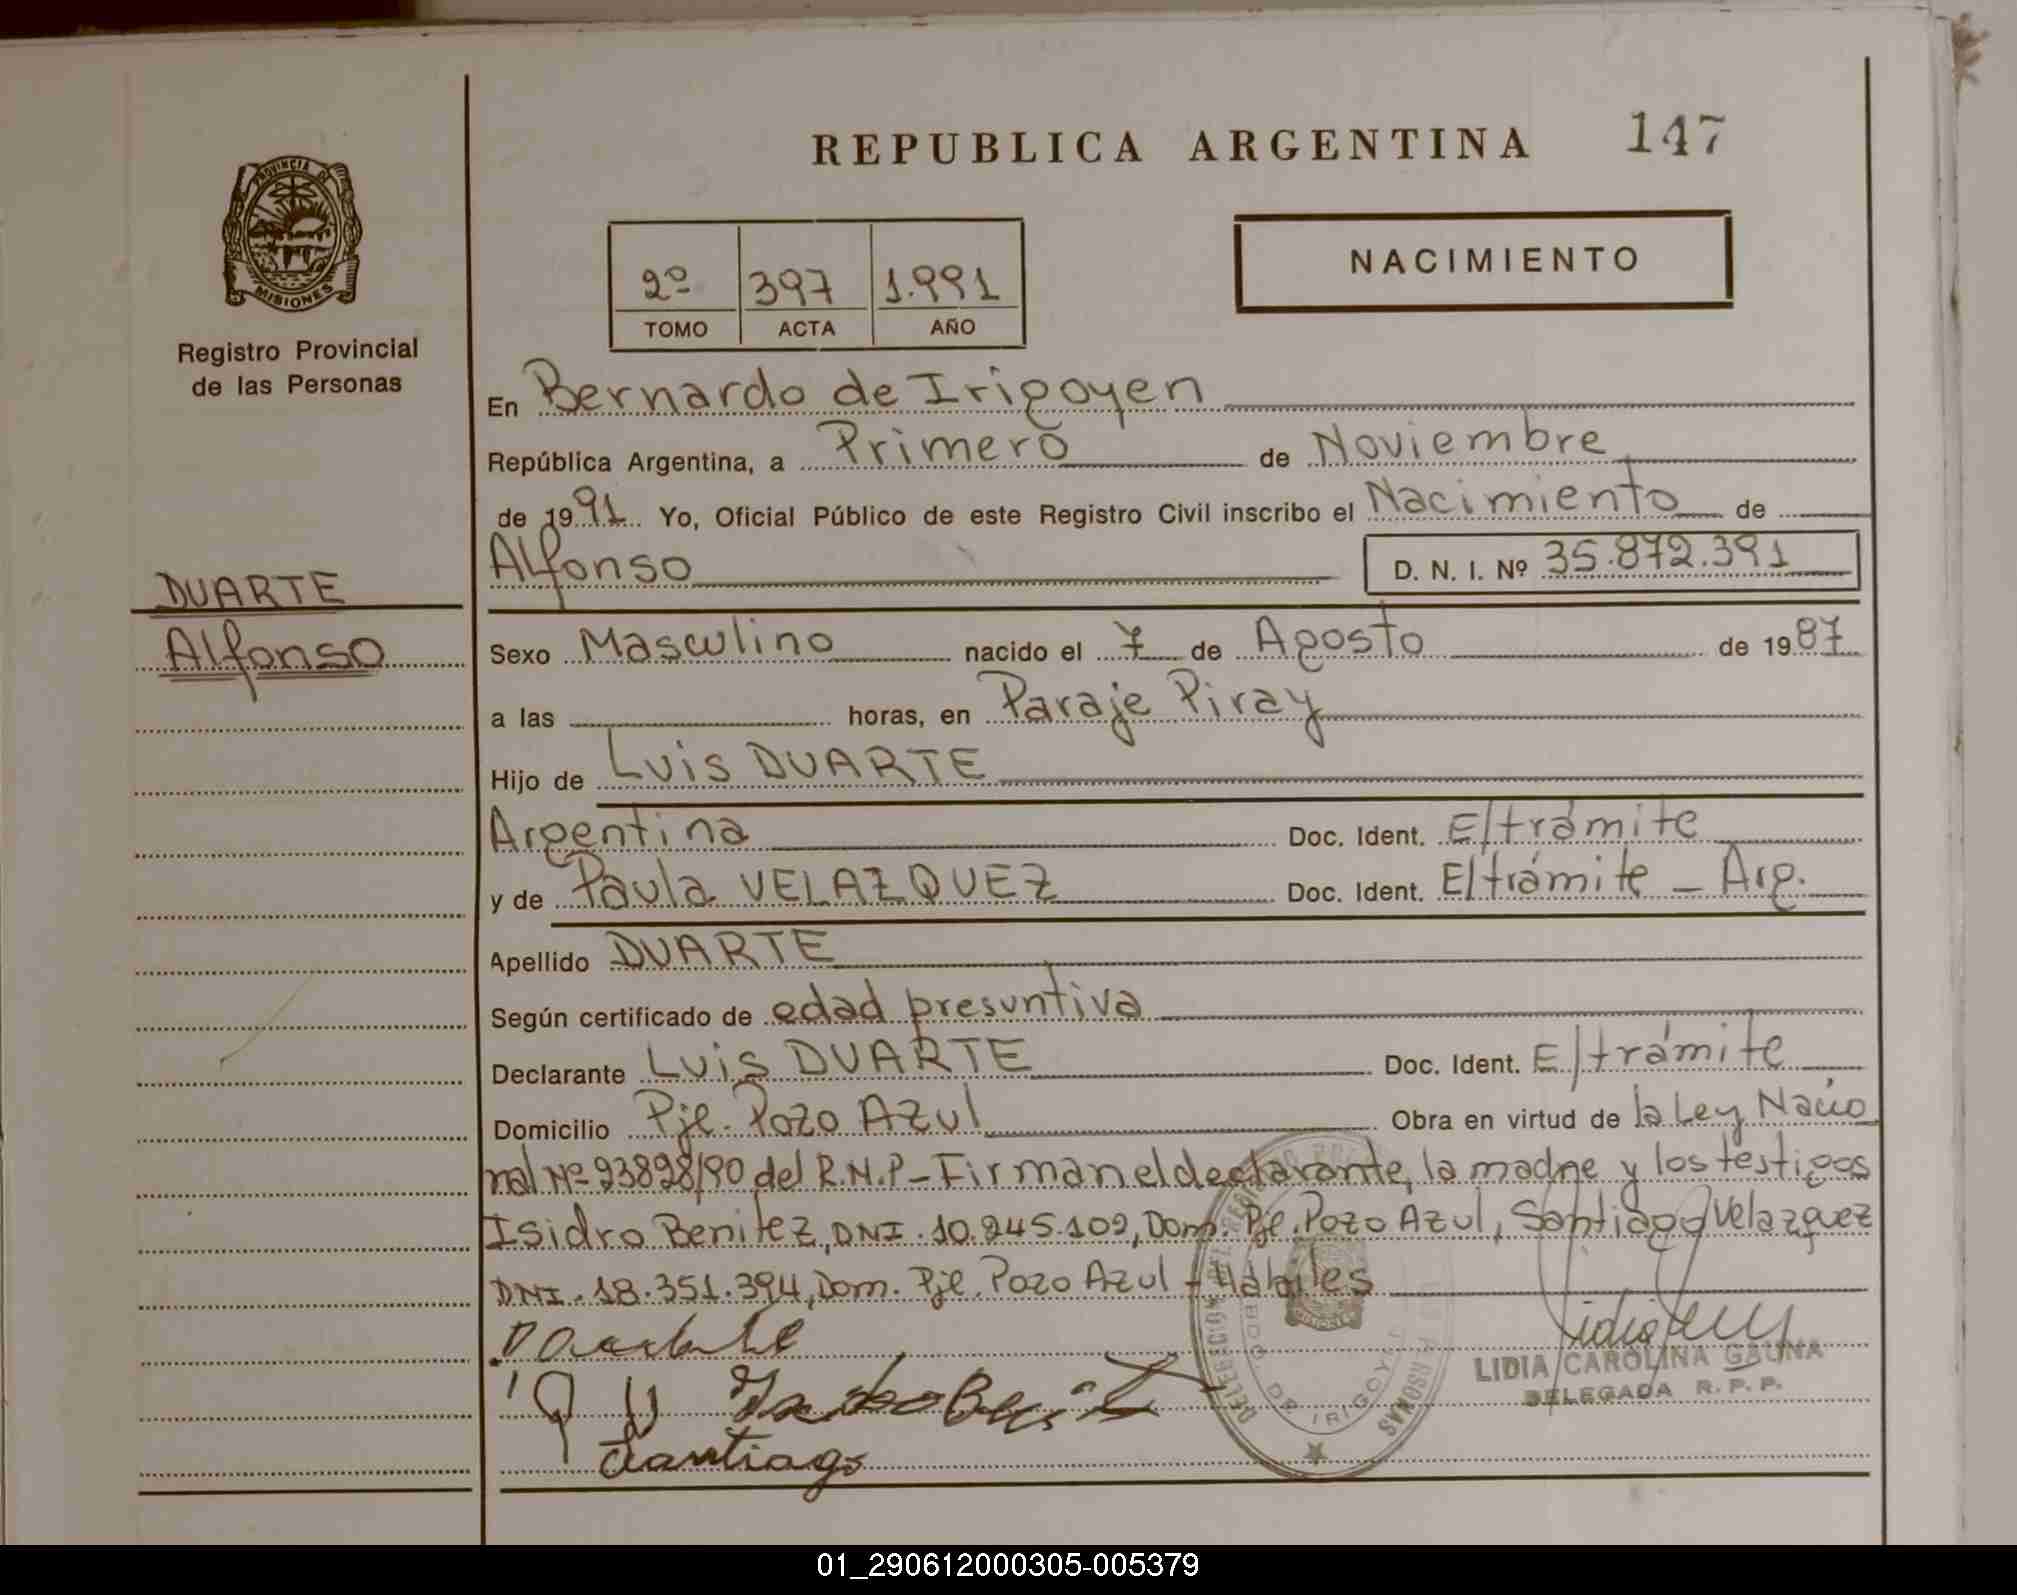 REPUBLICA ARGENTINA 147
PROVINCIA DE
MISIONES
Registro Provincial
de las Personas
2º 397 1.991
TOMO ACTA AÑO
NACIMIENTO
En Bernardo de Irigoyen
República Argentina, a Primero de Noviembre
de 1991 Yo, Oficial Público de este Registro Civil inscribo el Nacimiento de
Alfonso D. N. I. Nº 35.872.391
DUARTE
Alfonso
Sexo Masculino nacido el 7 de Agosto de 1987
a las horas, en Paraje Piray
Hijo de Luis DUARTE
Argentina Doc. Ident. E/trámite
y de Paula VELAZQUEZ Doc. Ident. E/trámite - Arg.
Apellido DUARTE
Según certificado de edad presuntiva
Declarante Luis DUARTE Doc. Ident. E/trámite
Domicilio Pje. Pozo Azul Obra en virtud de la Ley Nacio
nal Nº 23828/90 del R.N.P - Firman el declarante, la madre y los testigos
Isidro Benitez, DNI. 10.245.102, Dom. Pje. Pozo Azul, Santiago Velazquez
DNI. 18.351.394, Dom. Pje. Pozo Azul - Hábiles
LIDIA CAROLINA GAUNA
DELEGADA R. P. P.
Santiago
01_290612000305-005379